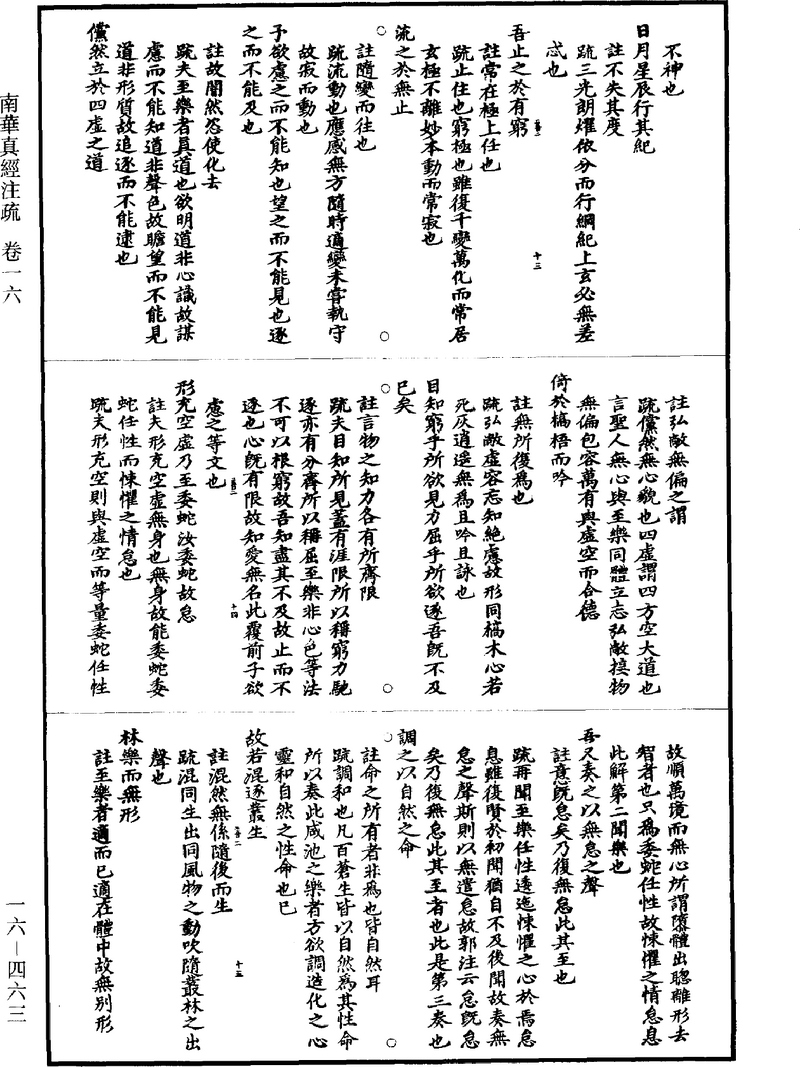 南華真經注疏　卷一六
一六—四六三
不神也
日月星辰行其紀
註不失其度
疏三光朗燿依分而行綱紀上玄必無差
忒也
吾止之於有窮
註常在極上住也
疏止住也窮極也雖復千變萬化而常居
玄極不離妙本動而常寂也
流之於無止
註隨變而往也
疏流動也應感無方隨時適變未嘗執守
故寂而動也
予欲慮之而不能知也望之而不能見也逐
之而不能及也
註故闇然恣使化去
疏夫至樂者真道也欲明道非心識故謀
慮而不能知道非聲色故瞻望而不能見
道非形質故追逐而不能逮也
儻然立於四虛之道
註弘敞無偏之謂
疏儻然無心貌也四虛謂四方空大道也
言聖人無心與至樂同體立志弘敞接物
無偏包容萬有與虛空而合德
倚於槁梧而吟
註無所復為也
疏弘敞虛容忘知絕慮故形同槁木心若
死灰逍遥無為且吟且詠也
目知窮乎所欲見力屈乎所欲逐吾既不及
已矣
註言物之知力各有所齊限
疏夫目知所見蓋有涯限所以稱窮力馳
逐亦有分齊所以稱屈至樂非心色等法
不可以根窮故吾知盡其不及故止而不
逐也心既有限故知愛無名此覆前子欲
慮之等文也
形充空虛乃至委蛇汝委蛇故怠
註夫形充空虛無身也無身故能委蛇委
蛇任性而悚懼之情怠也
疏夫形充空則與虛空而等量委蛇任性
故順萬境而無心所謂隳體出聰離形去
智者也只為委蛇任性故悚懼之情怠息
此解第二聞樂也
吾又奏之以無怠之聲
註意既怠矣乃復無怠此其至也
疏再聞至樂任性逶迤悚懼之心於焉怠
息雖復賢於初聞猶自不及後聞故奏無
怠之聲斯則以無遣怠故郭注云怠既怠
矣乃復無怠此其至者也此是第三奏也
調之以自然之命
註命之所有者非為也皆自然耳
疏調和也凡百蒼生皆以自然為其性命
所以奏此咸池之樂者方欲調造化之心
靈和自然之性命也已
故若混逐叢生
註混然無係隨後而生
疏混同生出同風物之動吹隨叢林之出
聲也
林樂而無形
註至樂者適而已適在體中故無別形